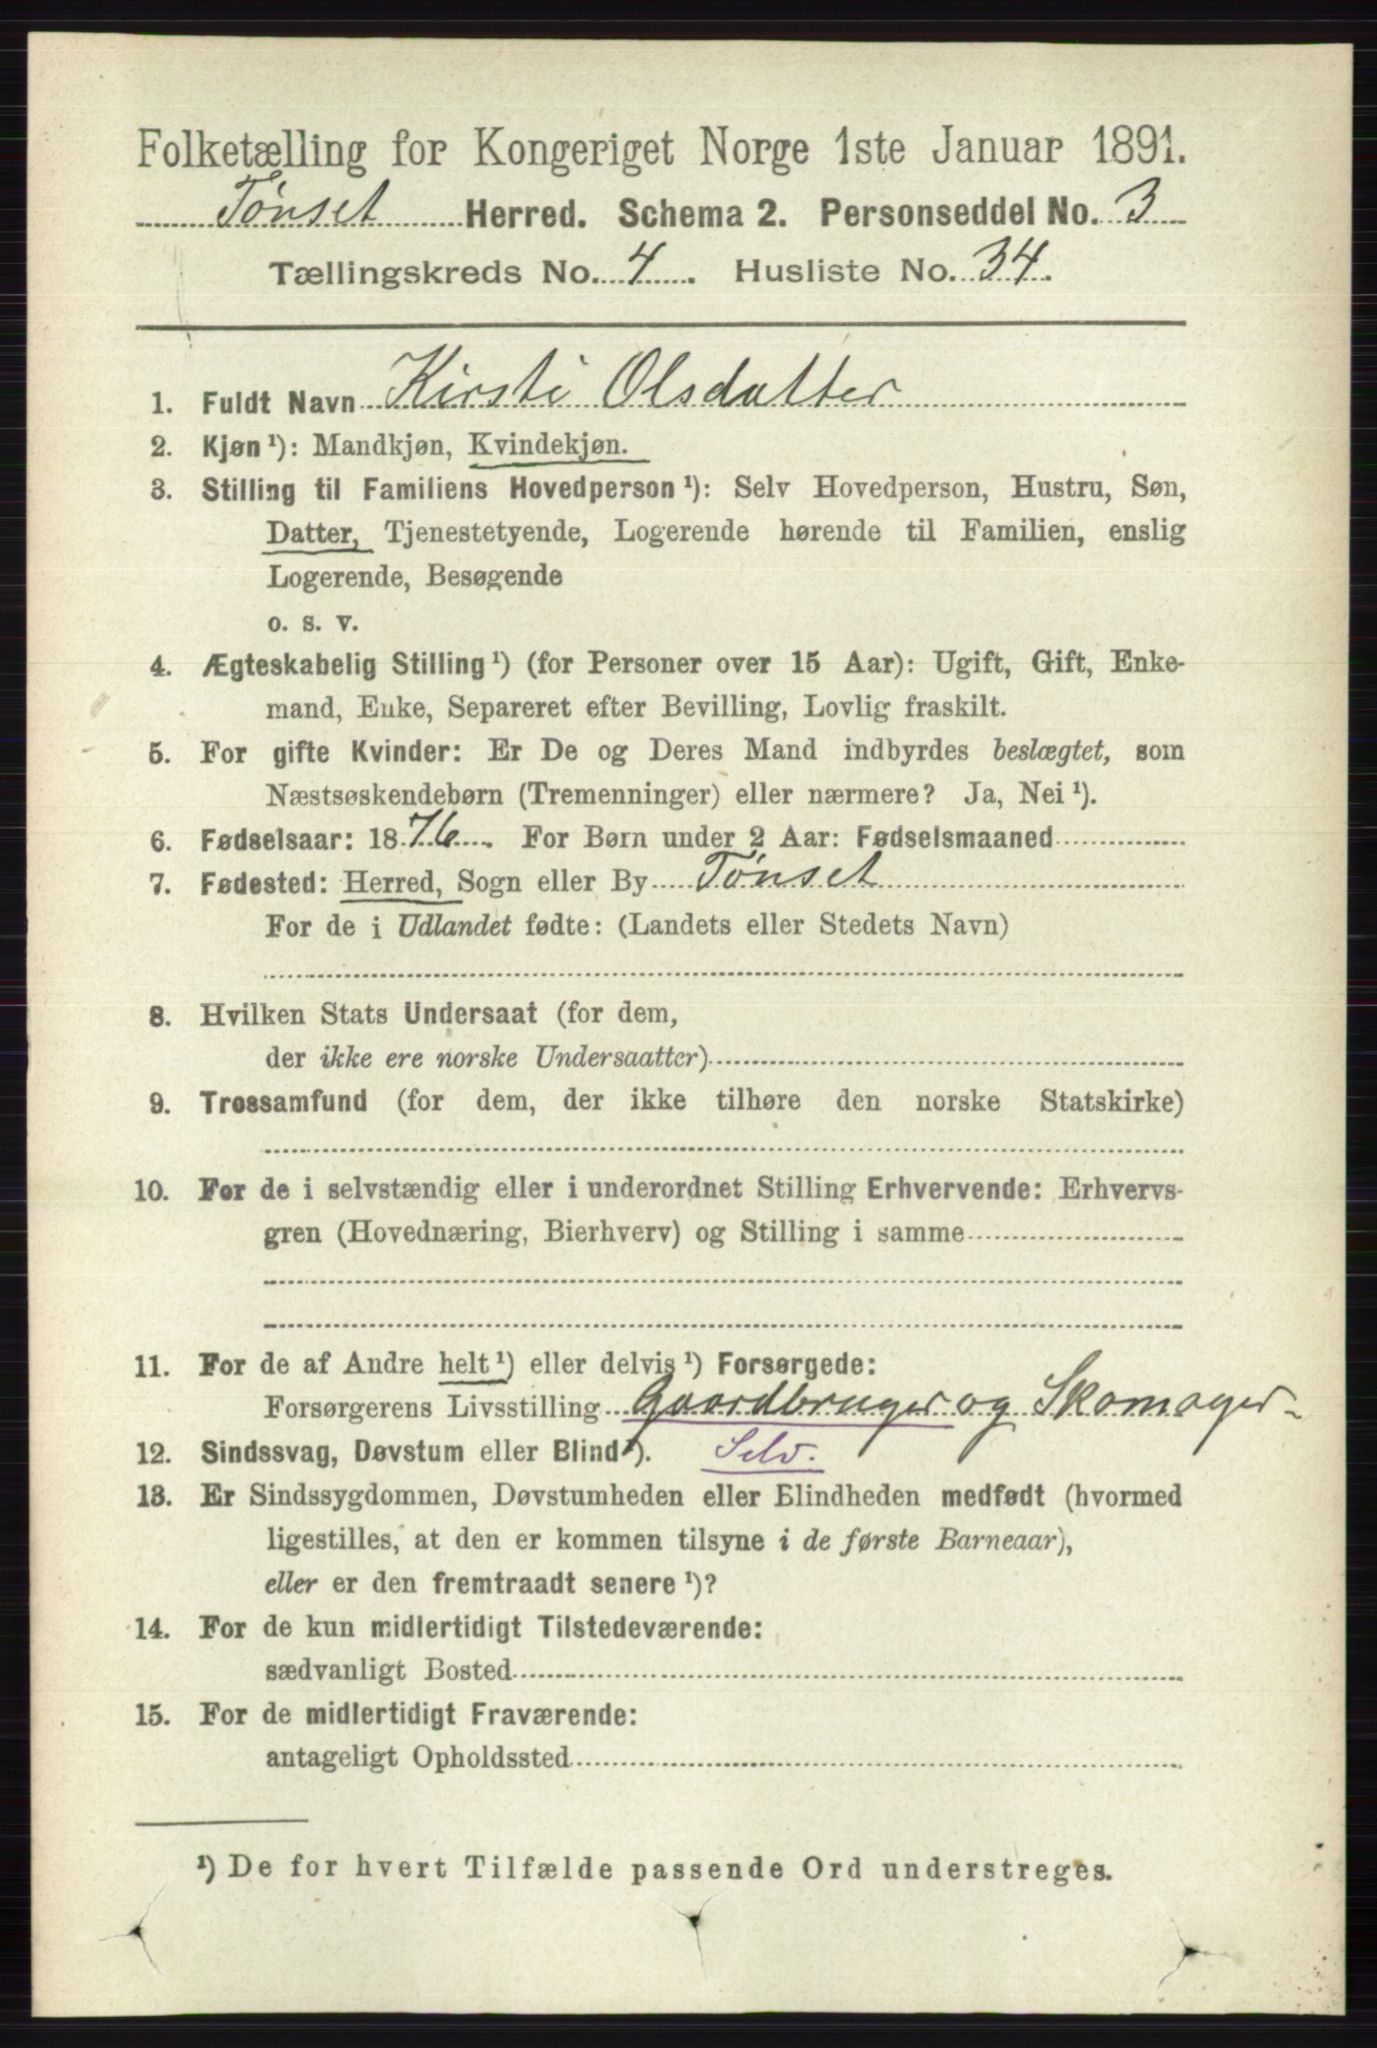 Folketælling for Kongeriget Norge 1ste Januar 1891.
Tønset Herred. Schema 2. Personseddel No. 3
Tællingskreds No. 4. Husliste No. 34.
1. Fuldt Navn Kirsti Olsdatter
2. Kjøn¹): Mandkjøn, Kvindekjøn.
3. Stilling til Familiens Hovedperson¹): Selv Hovedperson, Hustru, Søn,
Datter, Tjenestetyende, Logerende hørende til Familien, enslig
Logerende, Besøgende
o. s. v.
4. Ægteskabelig Stilling¹) (for Personer over 15 Aar): Ugift, Gift, Enke-
mand, Enke, Separeret efter Bevilling, Lovlig fraskilt.
5. For gifte Kvinder: Er De og Deres Mand indbyrdes beslægtet, som
Næstsøskendebørn (Tremenninger) eller nærmere? Ja, Nei¹).
6. Fødselsaar: 1876. For Børn under 2 Aar: Fødselsmaaned
7. Fødested: Herred, Sogn eller By Tønset
For de i Udlandet fødte: (Landets eller Stedets Navn)
8. Hvilken Stats Undersaat (for dem,
der ikke ere norske Undersaatter)
9. Trossamfund (for dem, der ikke tilhøre den norske Statskirke)
10. For de i selvstændig eller i underordnet Stilling Erhvervende: Erhvervs-
gren (Hovednæring, Bierhverv) og Stilling i samme
11. For de af Andre helt¹) eller delvis¹) Forsørgede:
Forsørgerens Livsstilling Gaardbruger og Skomager-
12. Sindssvag, Døvstum eller Blind¹). Selv.
13. Er Sindssygdommen, Døvstumheden eller Blindheden medfødt (hvormed
ligestilles, at den er kommen tilsyne i de første Barneaar),
eller er den fremtraadt senere¹)?
14. For de kun midlertidigt Tilstedeværende:
sædvanligt Bosted
15. For de midlertidigt Fraværende:
antageligt Opholdssted
¹) De for hvert Tilfælde passende Ord understreges.